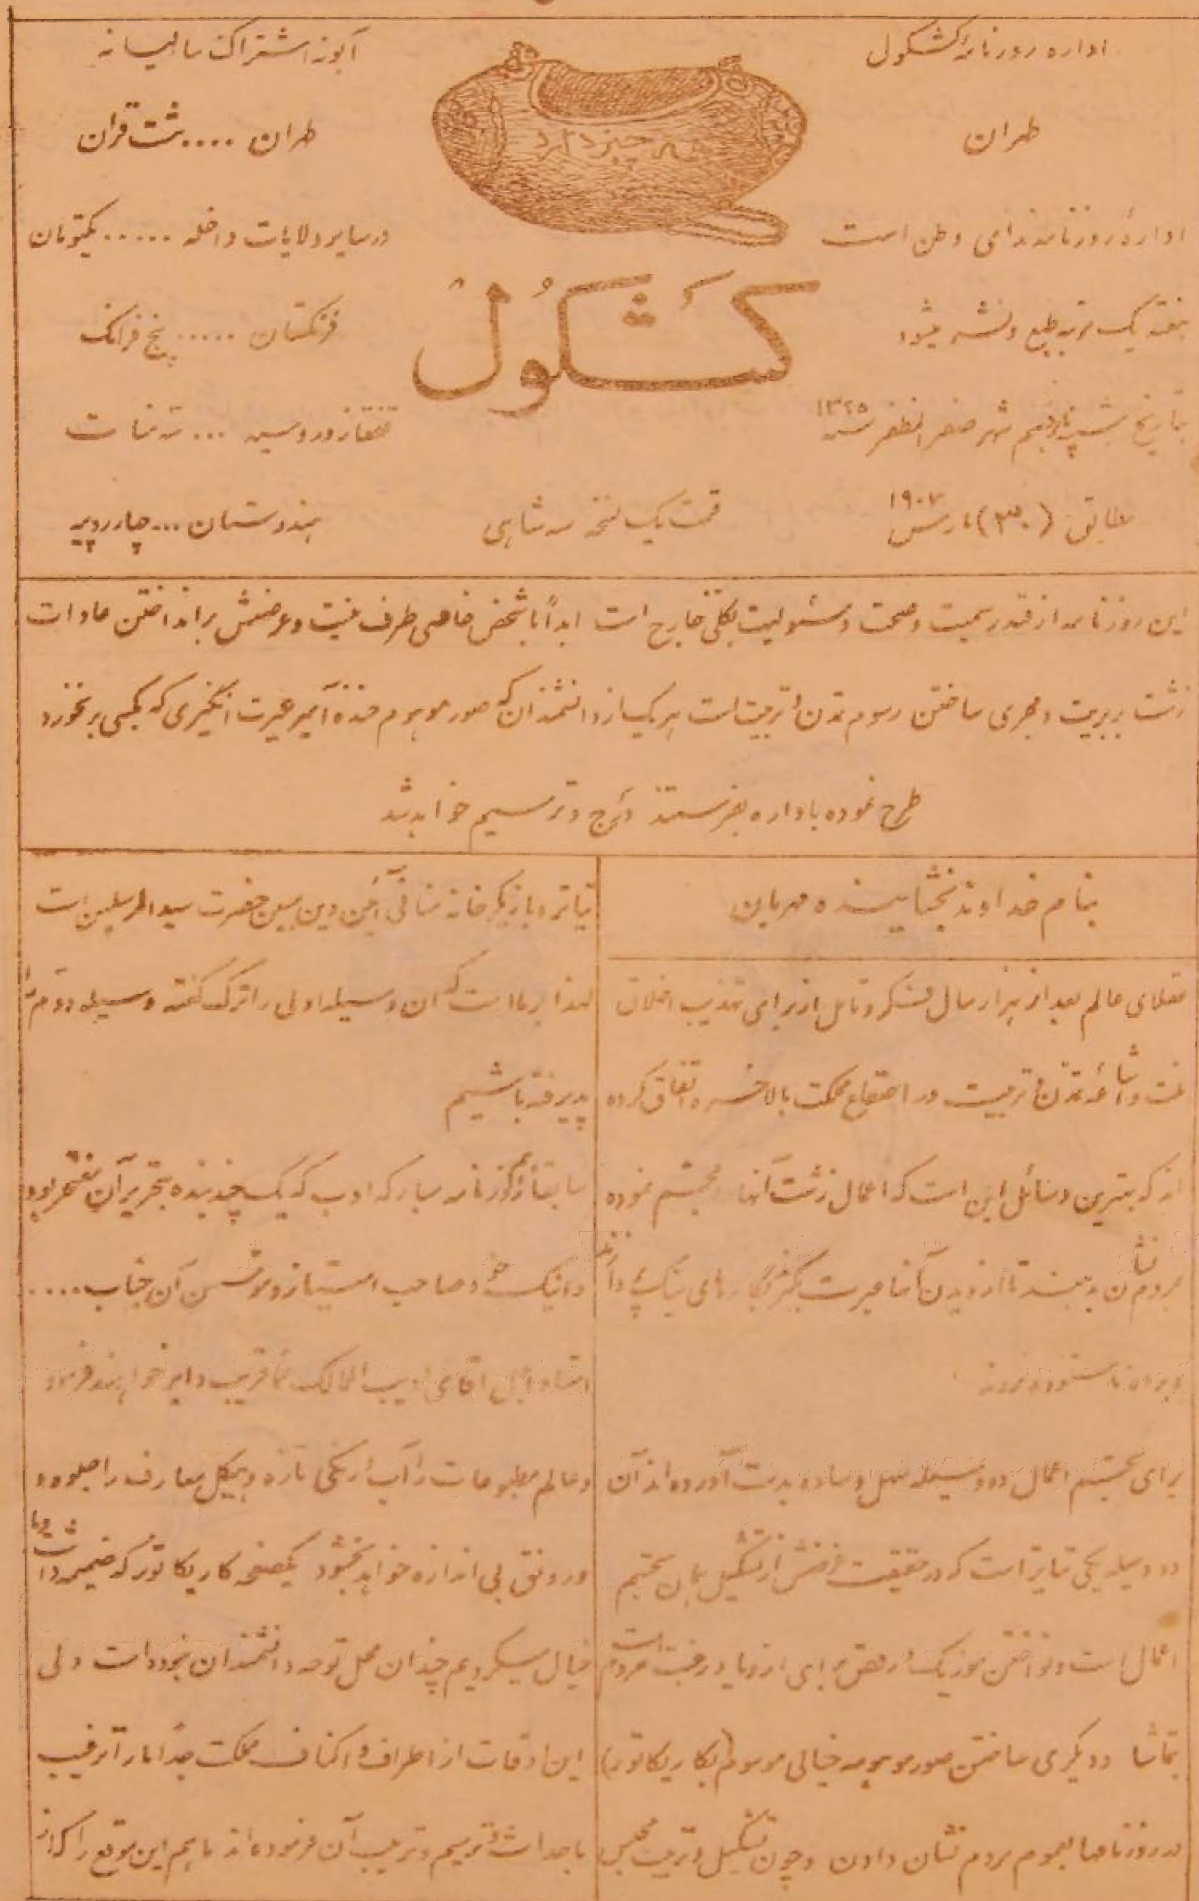 اداره روزنامهٔ کشکول
طهران
ادارهٔ روزنامه ندای وطن است
هفتهٔ یک مرتبه طبع و نشر میشود
بتاریخ شنبه پانزدهم شهر صفر المظفر سنه ۱۳۲۵
مطابق (۳۰) مارس ۱۹۰۷
همه چیز دارد
کشکول
قیمت یک نسخه سه شاهی
آبونه اشتراک سالیانه
طهران .... هشت قران
در سایر ولایات داخله ..... یکتومان
فرنگستان ..... پنج فرانک
قفقاز و روسیه ... سه منات
هندوستان ... چهار روپیه
این روزنامه از قید رسمیت و صحت و مسئولیت بکلی خارج است ابداً با شخص خاصی طرف نیست و غرضش برانداختن عادات
زشت بربریت و مجری ساختن رسوم تمدن و تربیت است هر یک از دانشمندان که صور موهوم خنده آمیز عبرت انگیزی که بکسی بر نخورد
طرح نموده باداره بفرستند درج و ترسیم خواهد شد
بنام خداوند بخشاینده مهربان
عقلای عالم بعد از هزار سال تفکر و تامل از برای تهذیب اخلاق
و اشاعهٔ تمدن و تربیت در اصقاع مملکت بالاخره اتفاق کرده
اند که بهترین وسائل این است که اعمال زشت آنها مجسّم نموده
بمردم نشان بدهند تا از دیدن آنها عبرت بگیرند بکارهای نیک پردازند
برای تجسّم اعمال دو وسیله سهل و ساده بدست آورده‌اند آن
دو وسیله یکی تیاتر است که در حقیقت غرضش از تشکیل همان تجسّم
اعمال است و نواختن موزیک و رقص برای ازدیاد رغبت مردم است
بتماشا و دیگری ساختن صور موهومه خیالی موسوم (بکاریکاتور)
در روزنامها بعموم مردم نشان دادن و چون تشکیل و ترتیب مجلس
تیاتر و بازیگرخانه منافی آئین دین مبین حضرت سید المرسلین است
لهذا بر ما است که آن وسیله اولی را ترک گفته وسیله دوم را
پذیرفته باشیم
سابقاً در روزنامه مبارکه ادب که یک چند بنده بتحریر آن مفتخر بود
و اینک خود صاحب امتیاز و موسس آن جناب ....
اجل آقای ادیب الممالک عنقریب دایر خواهند فرمود
و عالم مطبوعات را آب و رنگی تازه و هیکل معارف را جلوه و
رونق بی اندازه خواهد بخشود یکصفحه کاریکاتور که ضمیمه داشت و ما
خیال میکردیم چندان محل توجه دانشمندان نبوده است ولی
این اوقات از اطراف و اکناف مملکت جداً ما را ترغیب
باحداث و ترسیم و ترتیب آن فرموده‌اند ما هم این موقع را که از